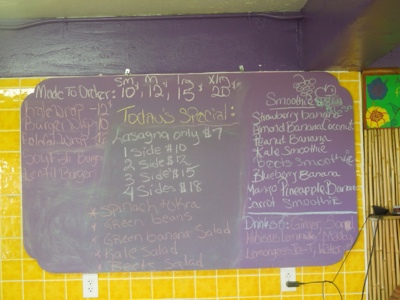 Made To Order: Sm 10$, M 12$, Lrg 15$, Xlrg 20$
Wrap - 12$
Burger Wrap - 10
Falafel Wrap
Burger
Lentil Burger
Today's Special:
Lasagna only $7
1 Side $10
2 Side $12
3 Side $15
4 Sides $18
Spinach + Okra
Green beans
Green banana Salad
Kale Salad
Beets Salad
Smoothie
Strawberry banana
Almond Banana Coconut
Peanut Banana
Kale Smoothie
Beets Smoothie
Blueberry Banana
Mango Pineapple Banana
Carrot Smoothie
Drinks: Ginger, Sorrel